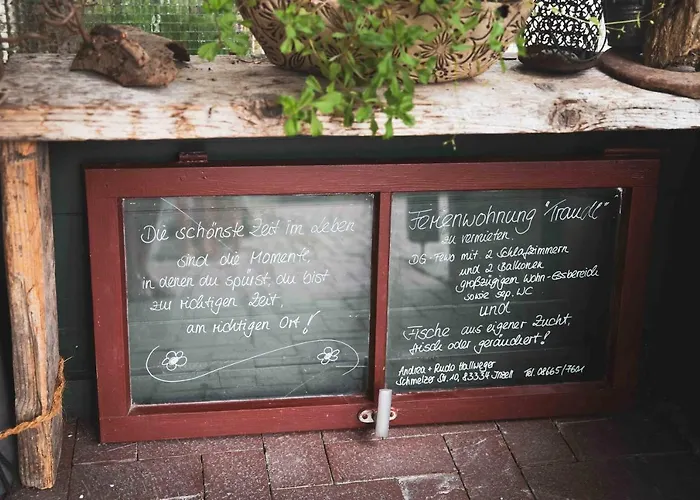 Die schönste Zeit im Leben
sind die Momente,
in denen du spürst, du bist
zur richtigen Zeit,
am richtigen Ort!
Ferienwohnung "Traudl"
zu vermieten.
DG-Fewo mit 2 Schlafzimmern
und 2 Balkonen
großzügigem Wohn-Essbereich
sowie sep. WC
und
Fische aus eigener Zucht,
frisch oder geräuchert!
Andrea + Rudo Hallweger
Schmelzer Str. 10, 83334 Inzell Tel. 08665/7631